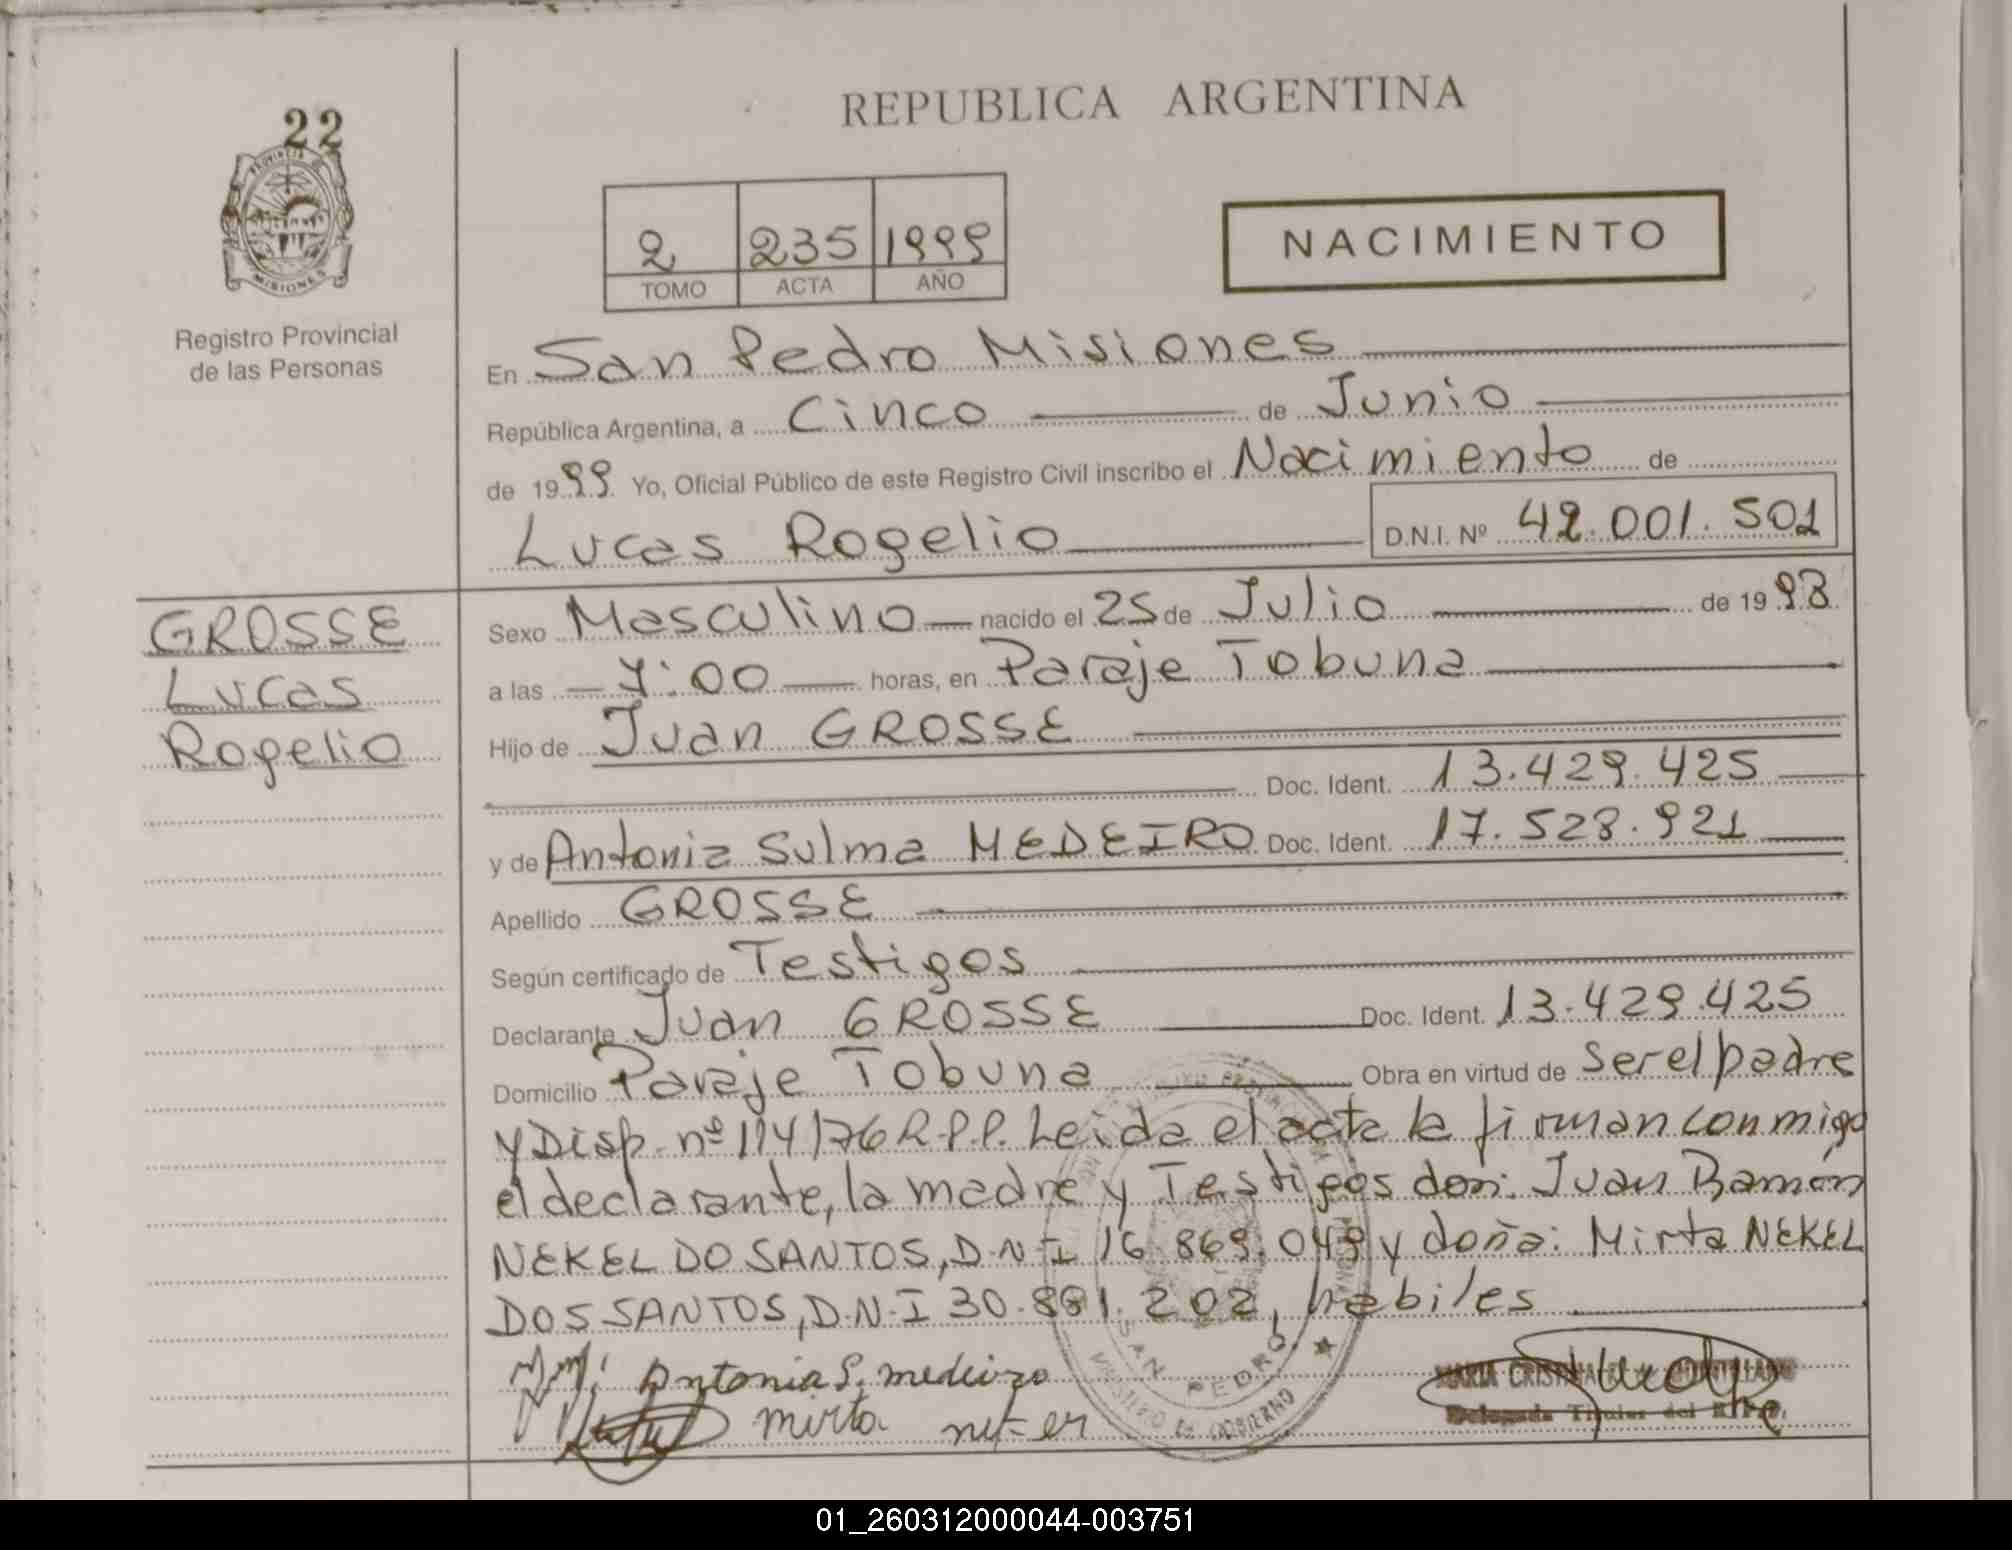 22
PROVINCIA
MISIONES
Registro Provincial
de las Personas
REPUBLICA ARGENTINA
2 235 1999
TOMO ACTA AÑO
NACIMIENTO
En San Pedro Misiones
República Argentina, a Cinco de Junio
de 1999 Yo, Oficial Público de este Registro Civil inscribo el Nacimiento de
Lucas Rogelio D.N.I. Nº 42.001.501
GROSSE
Lucas
Rogelio
Sexo Masculino nacido el 25 de Julio de 1998
a las 7:00 horas, en Paraje Tobuna
Hijo de Juan GROSSE
Doc. Ident. 13.429.425
y de Antonia Sulma MEDEIRO Doc. Ident. 17.528.921
Apellido GROSSE
Según certificado de Testigos
Declarante Juan GROSSE Doc. Ident. 13.429.425
Domicilio Paraje Tobuna Obra en virtud de ser el padre
y Disp. nº 114/76 R.P.P. Leida el acta la firman conmigo
el declarante, la madre y Testigos don: Juan Ramón
NEKEL DO SANTOS, D.N.I 16.869.049 y doña: Mirta NEKEL
DOS SANTOS, D.N.I 30.881.202, habiles
Antonia S. medeiro
mirta
SAN PEDRO
MINISTERIO DE GOBIERNO
MARIA CRISTINA
Delegada Titular del R.P.P.
01_260312000044-003751